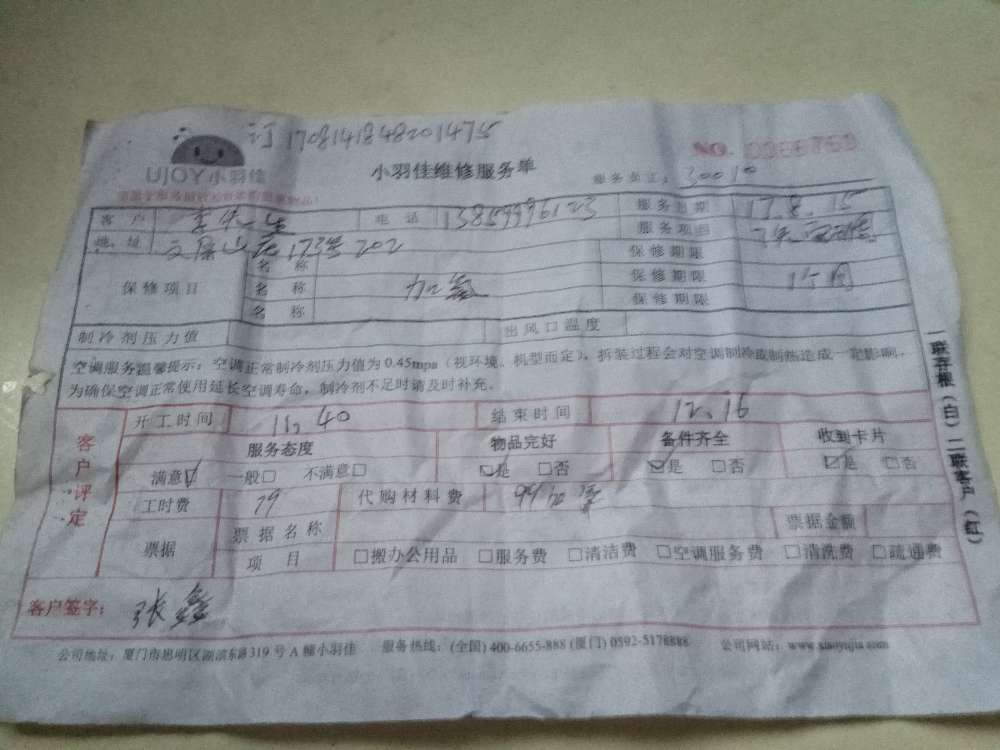 订 1708141848201475
UJOY小羽佳
小羽佳维修服务单
NO.
服务员工: 30010
客户 电话 13859996123 服务日期 17.8.15
地址 173号202 服务项目
保修项目 名称 保修期限
名称 加氟 保修期限 1个月
名称 保修期限
制冷剂压力值 出风口温度
空调服务温馨提示：空调正常制冷剂压力值为0.45mpa（视环境、机型而定），拆装过程会对空调制冷或制热造成一定影响，
为确保空调正常使用延长空调寿命，制冷剂不足时请及时补充。
客户评定
开工时间 11.40 结束时间 12.16
服务态度 物品完好 备件齐全 收到卡片
满意☑ 一般□ 不满意□ ☑是 □否 ☑是 □否 ☑是 □否
工时费 79 代购材料费 99加氟
票据 票据名称 票据金额
项目 □搬办公用品 □服务费 □清洁费 □空调服务费 □清洗费 □疏通费
客户签字: 张鑫
公司地址: 厦门市思明区湖滨东路319号A幢小羽佳 服务热线: (全国) 400-6655-888 (厦门) 0592-5178888 公司网站: www.xiaoyujia.com
一联存根（白）二联客户（红）